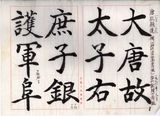 大唐故
太子右
庶子銀
護軍阜